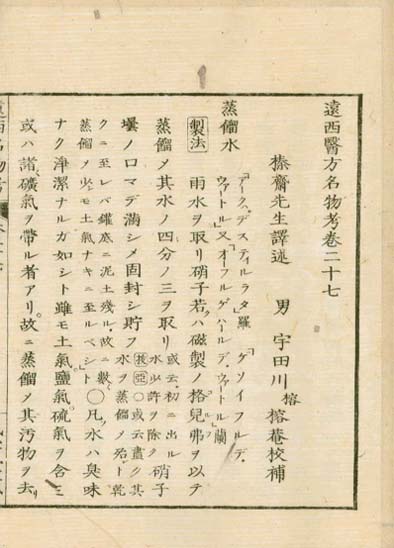 遠西醫方名物考卷二十七
榛齋先生譯述 男 宇田川 榕 榕菴校補
蒸餾水
「アークゥ、デスティルラタ」羅「ゲソイフルデ、
ヴァートル」又「オーフルゲハールデ、ヴァートル」蘭
製法 雨水ヲ取リ硝子若クハ磁製ノ格兒弗ヲ以テ
コルフ
蒸餾メ其水ノ四分ノ三ヲ取リ 或云、初ニ出ル
水少許ヲ除ク 硝子
壜ノ口マデ滿シメ固封シ貯フ 莪亞○或云盡ク其
水ヲ蒸餾メ殆ト乾
クニ至レバ罐底ニ泥土殘ル、故ニ數
蒸餾メ少モ土氣ナキニ至ルベシト ○凡ソ水ハ臭味
ナク淨潔ナルガ如シト雖モ土氣、鹽氣、硫氣ヲ含ミ
或ハ諸礦氣ヲ帶ル者アリ。故ニ蒸餾メ其汚物ヲ去リ
遠西名物考